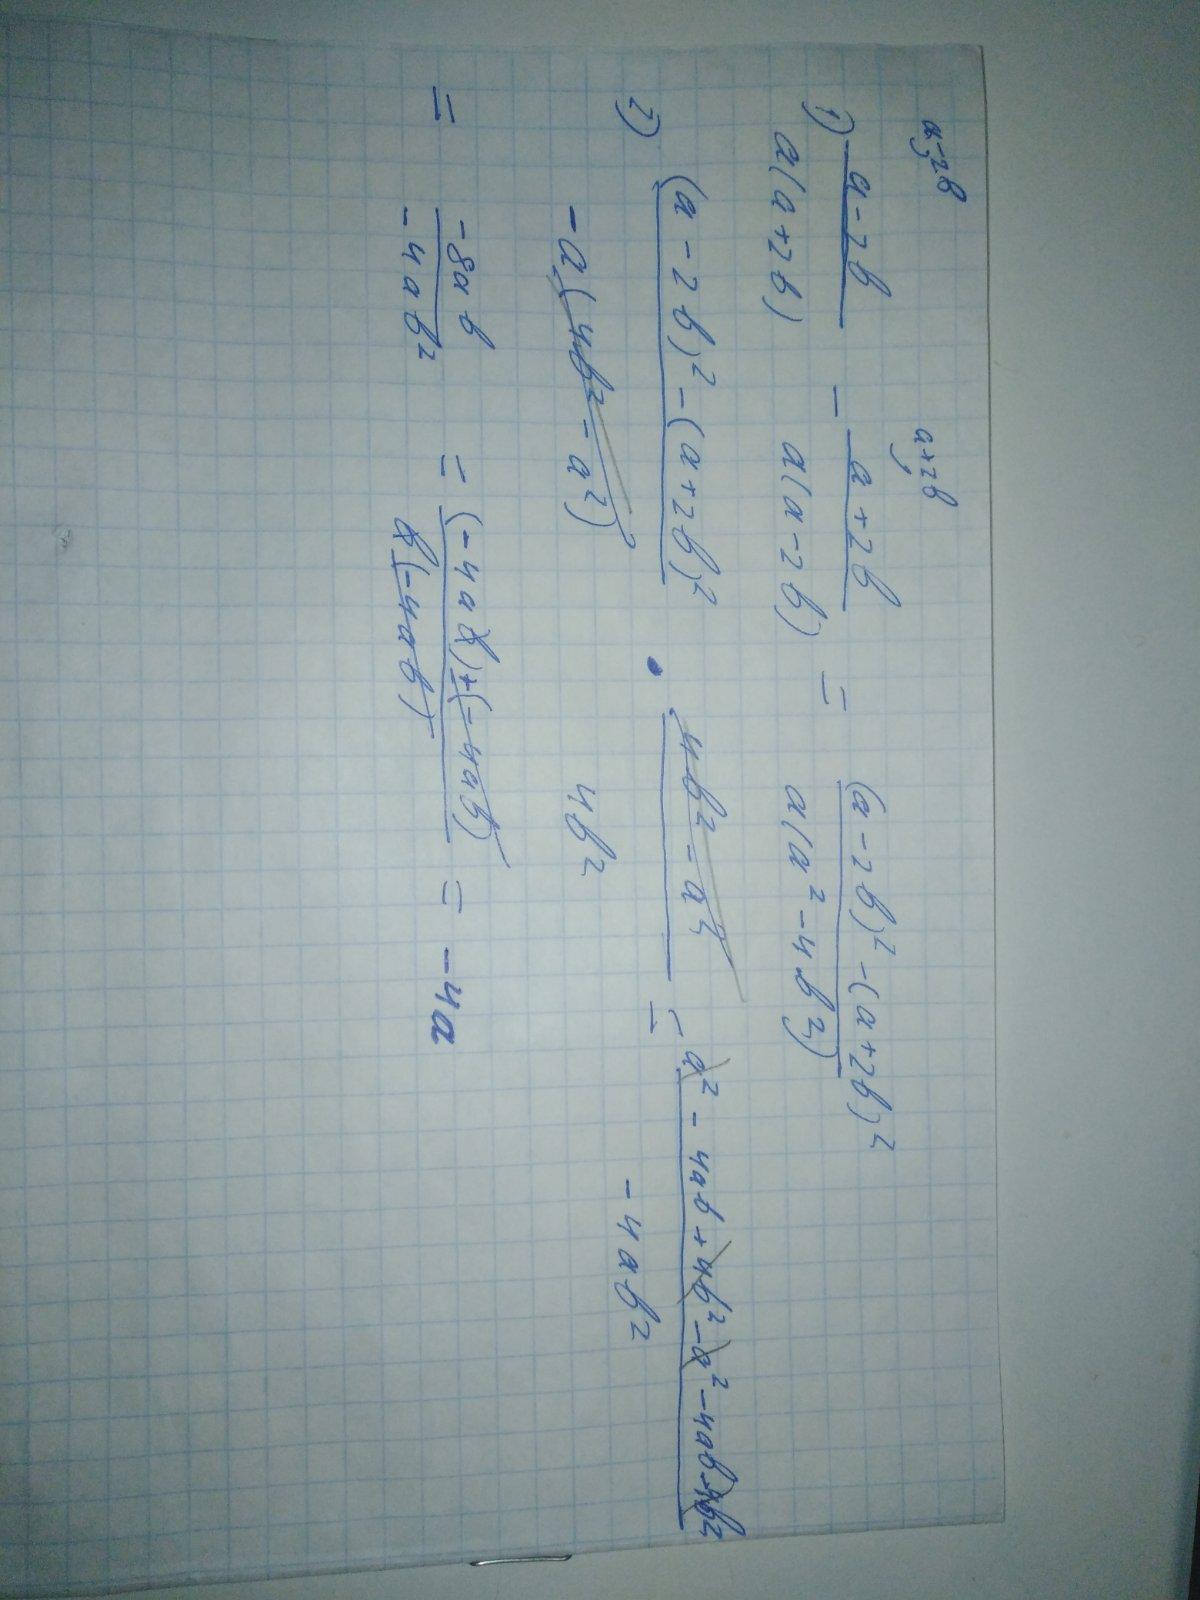 a-2b a+2b
1) a-2b/a(a+2b) - a+2b/a(a-2b) = (a-2b)²-(a+2b)²/a(a²-4b²)
2) (a-2b)²-(a+2b)²/-a(4b²-a²) • 4b²-a²/4b² = a²-4ab+4b²-a²-4ab-4b²/-4ab²
= -8ab/-4ab² = (-4ab)+(-4ab)/b(-4ab) = -4a